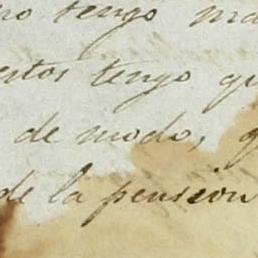 no tengo ma
ertos tengo qu
de modo, q
de la pension